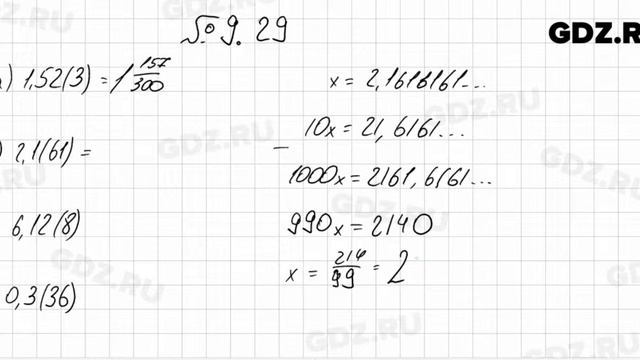 № 9.29
GDZ.R
) 1,52(3) = 1 157/300
) 2,1(61) =
6,12(8)
0,3(36)
x = 2,1616161...
10x = 21,6161...
−
1000x = 2161,6161...
990x = 2140
x = 214/99 = 2
GDZ.RU
GDZ.RU
GDZ.RU
GDZ.RU
GDZ.RU